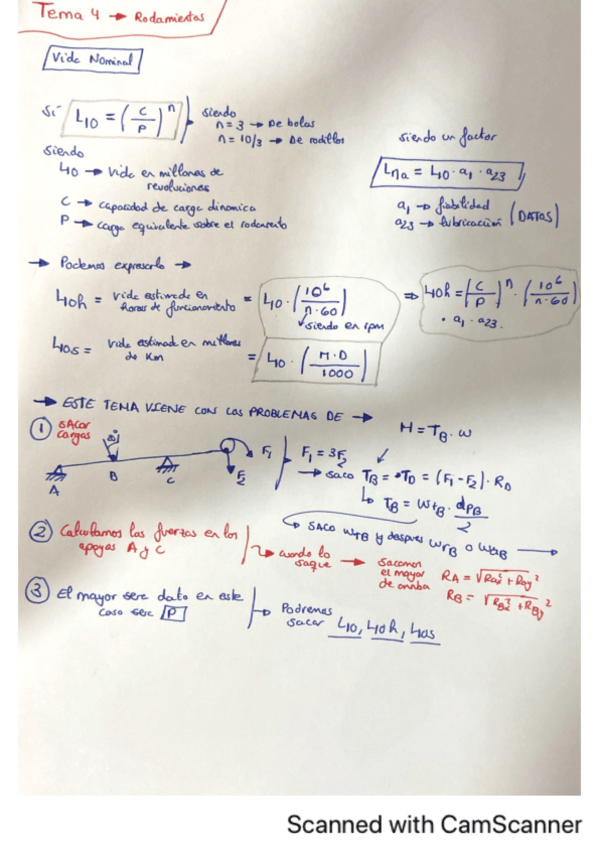 Tema 4 → Rodamientos
Vida Nominal
Si L10 = (C/P)^n siendo
n = 3 → De bolas
n = 10/3 → De rodillos
siendo
L10 → Vida en millones de revoluciones
C → capacidad de carga dinamica
P → carga equivalente sobre el rodamiento
siendo un factor
Lna = L10 · a1 · a23
a1 → fiabilidad
a23 → lubricación (DATOS)
→ Podemos expresarlo →
L10h = vida estimada en horas de funcionamiento = L10 · (10^6 / n·60)
siendo en rpm
⇒ L10h = (C/P)^n · (10^6 / n·60)
· a1 · a23.
L10s = vida estimada en millones de Km = L10 · (π·D / 1000)
→ ESTE TEMA VIENE CON LOS PROBLEMAS DE →
H = TB · ω
① SACAR cargas
A
B
C
F1
F2
F1 = 3F2
→ saco TB = TD = (F1 - F2) · RD
↳ TB = WtB · dPB/2
→ SACO WTB y despues WrB o WaB →
② Calculamos las fuerzas en los apoyos A y C
→ cuando lo saque → sacamos el mayor de arriba
RA = √RAz² + RAy²
RB = √RBz² + RBy²
③ El mayor sera dato en este caso sera P
→ Podremos sacar L10, L10h, L10s
Scanned with CamScanner